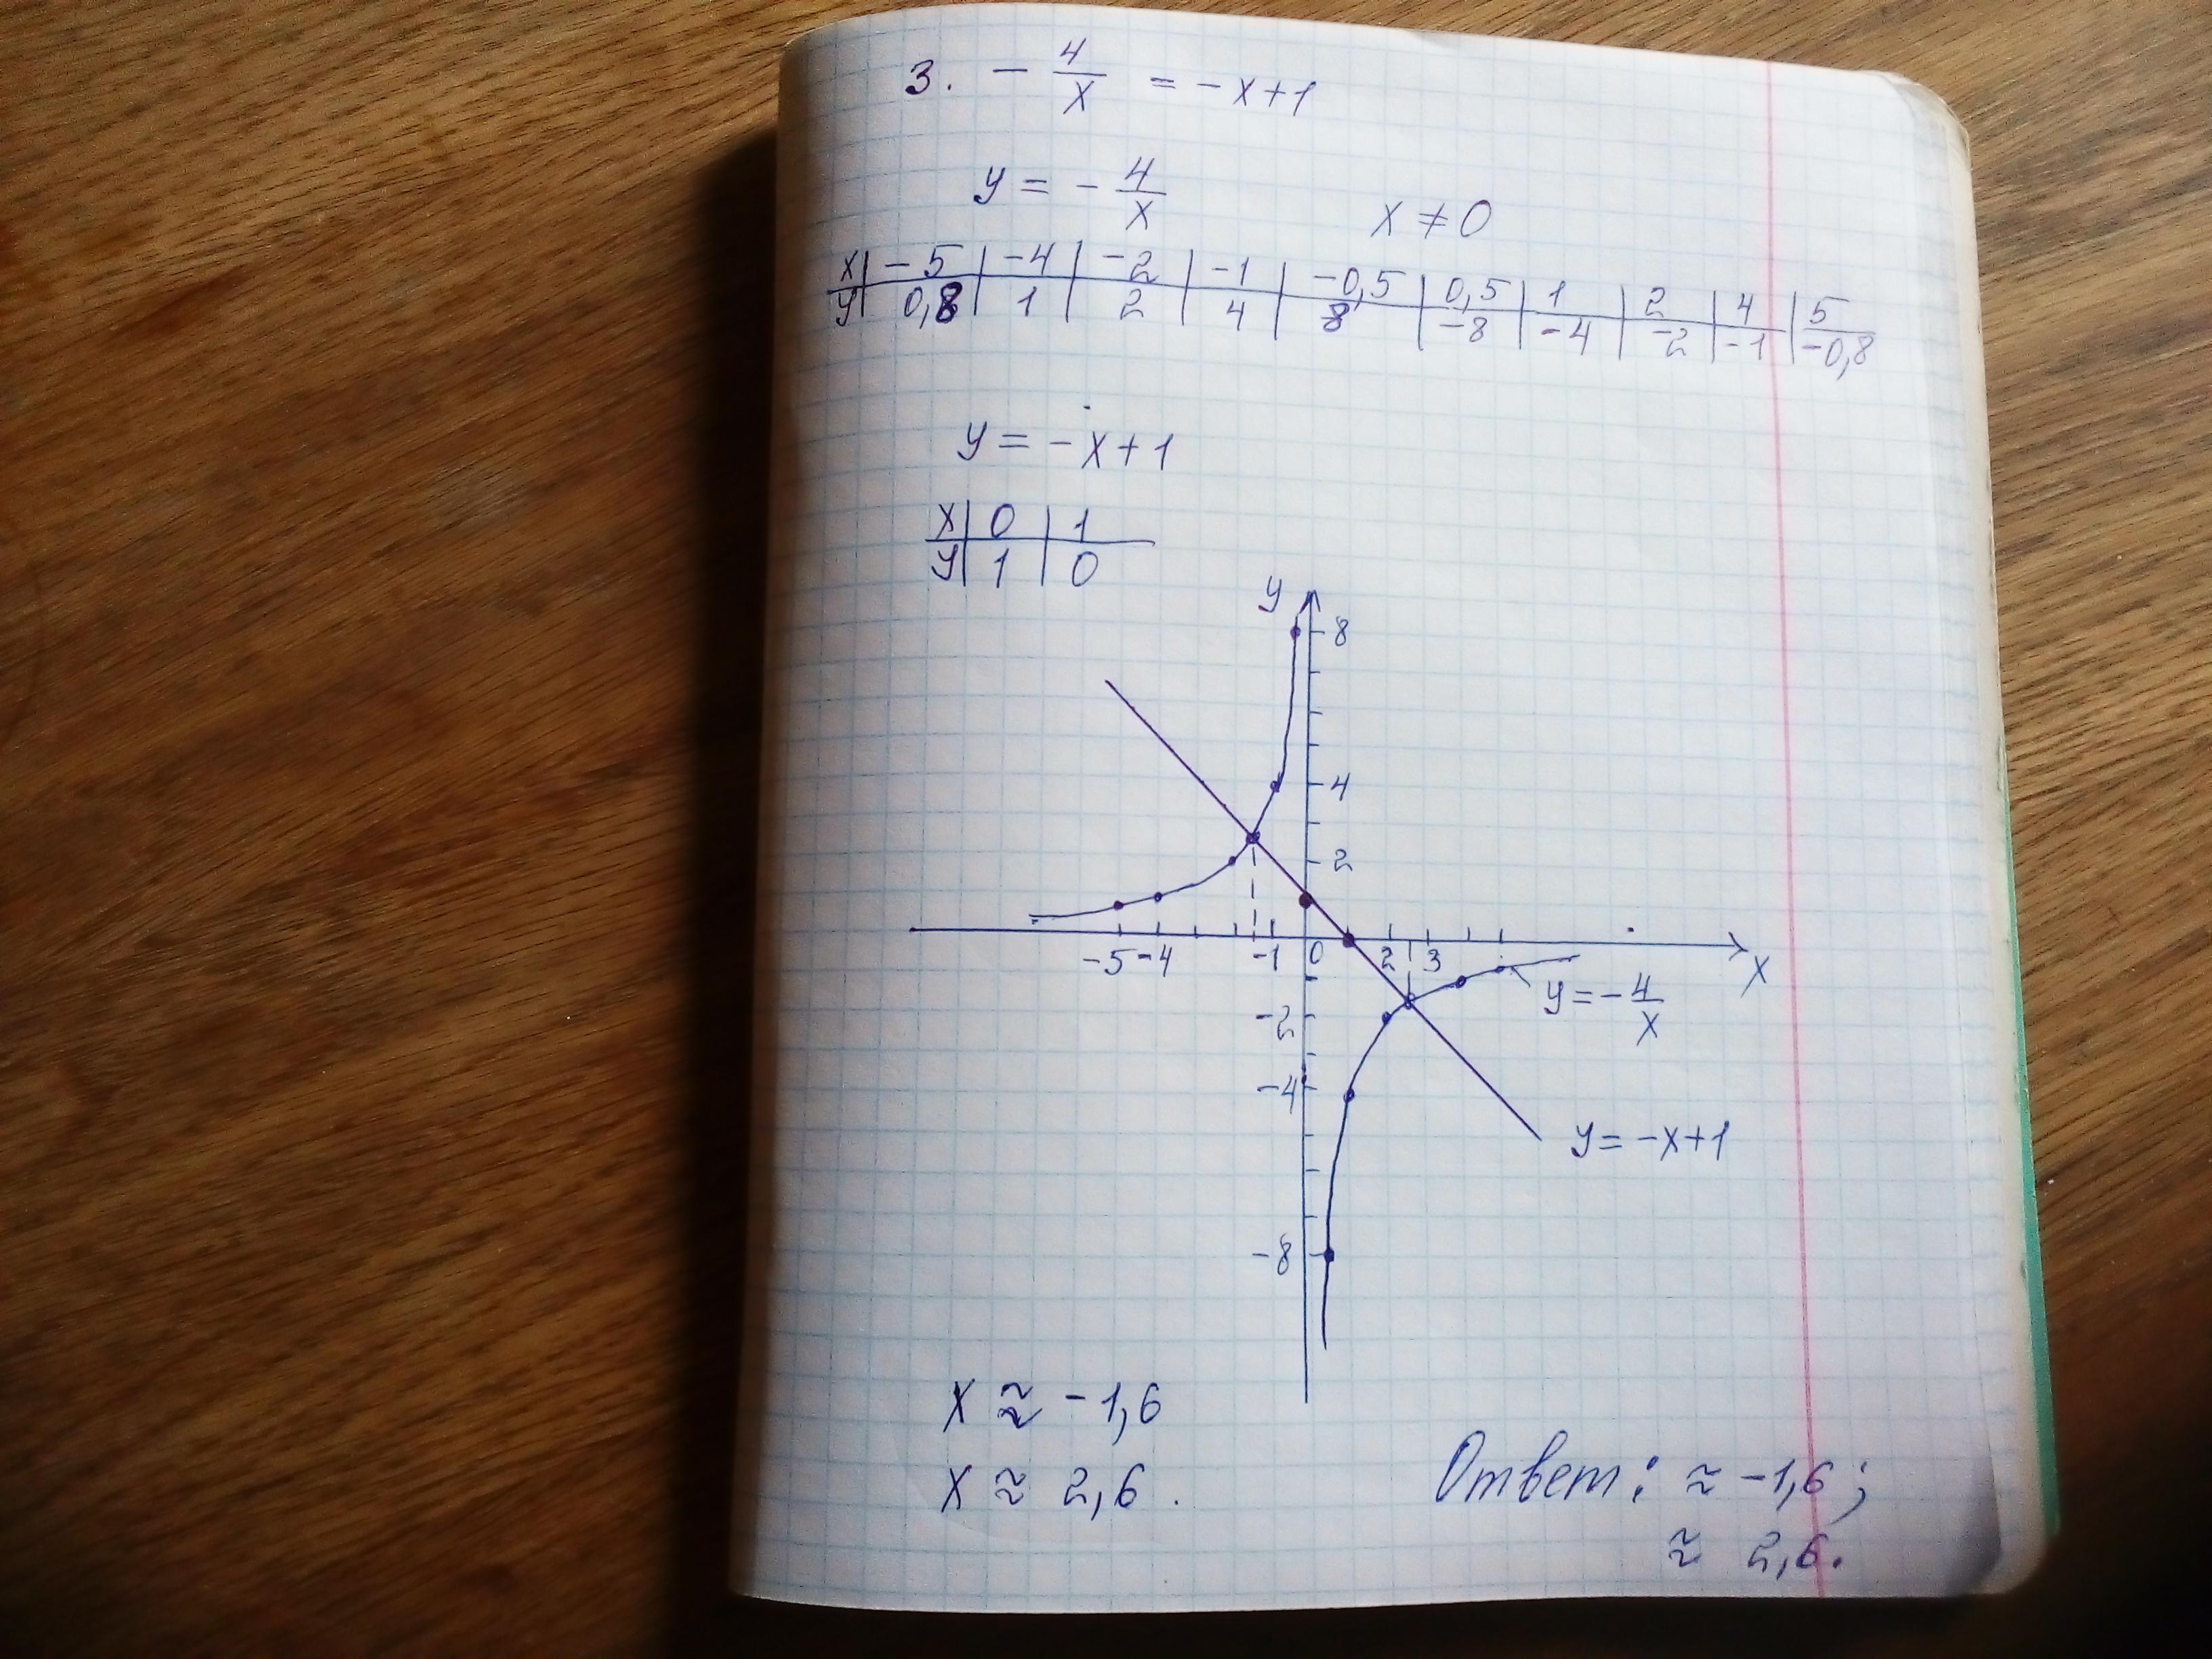 3. - 4/x = -x+1
y = - 4/x x ≠ 0
x | -5 | -4 | -2 | -1 | -0,5 | 0,5 | 1 | 2 | 4 | 5
y | 0,8 | 1 | 2 | 4 | 8 | -8 | -4 | -2 | -1 | -0,8
y = -x+1
x | 0 | 1
y | 1 | 0
y
8
4
2
-5 -4 -1 0 2 3
x
y = - 4/x
-2
-4
y = -x+1
-8
x ≈ -1,6
x ≈ 2,6.
Ответ: ≈ -1,6;
≈ 2,6.